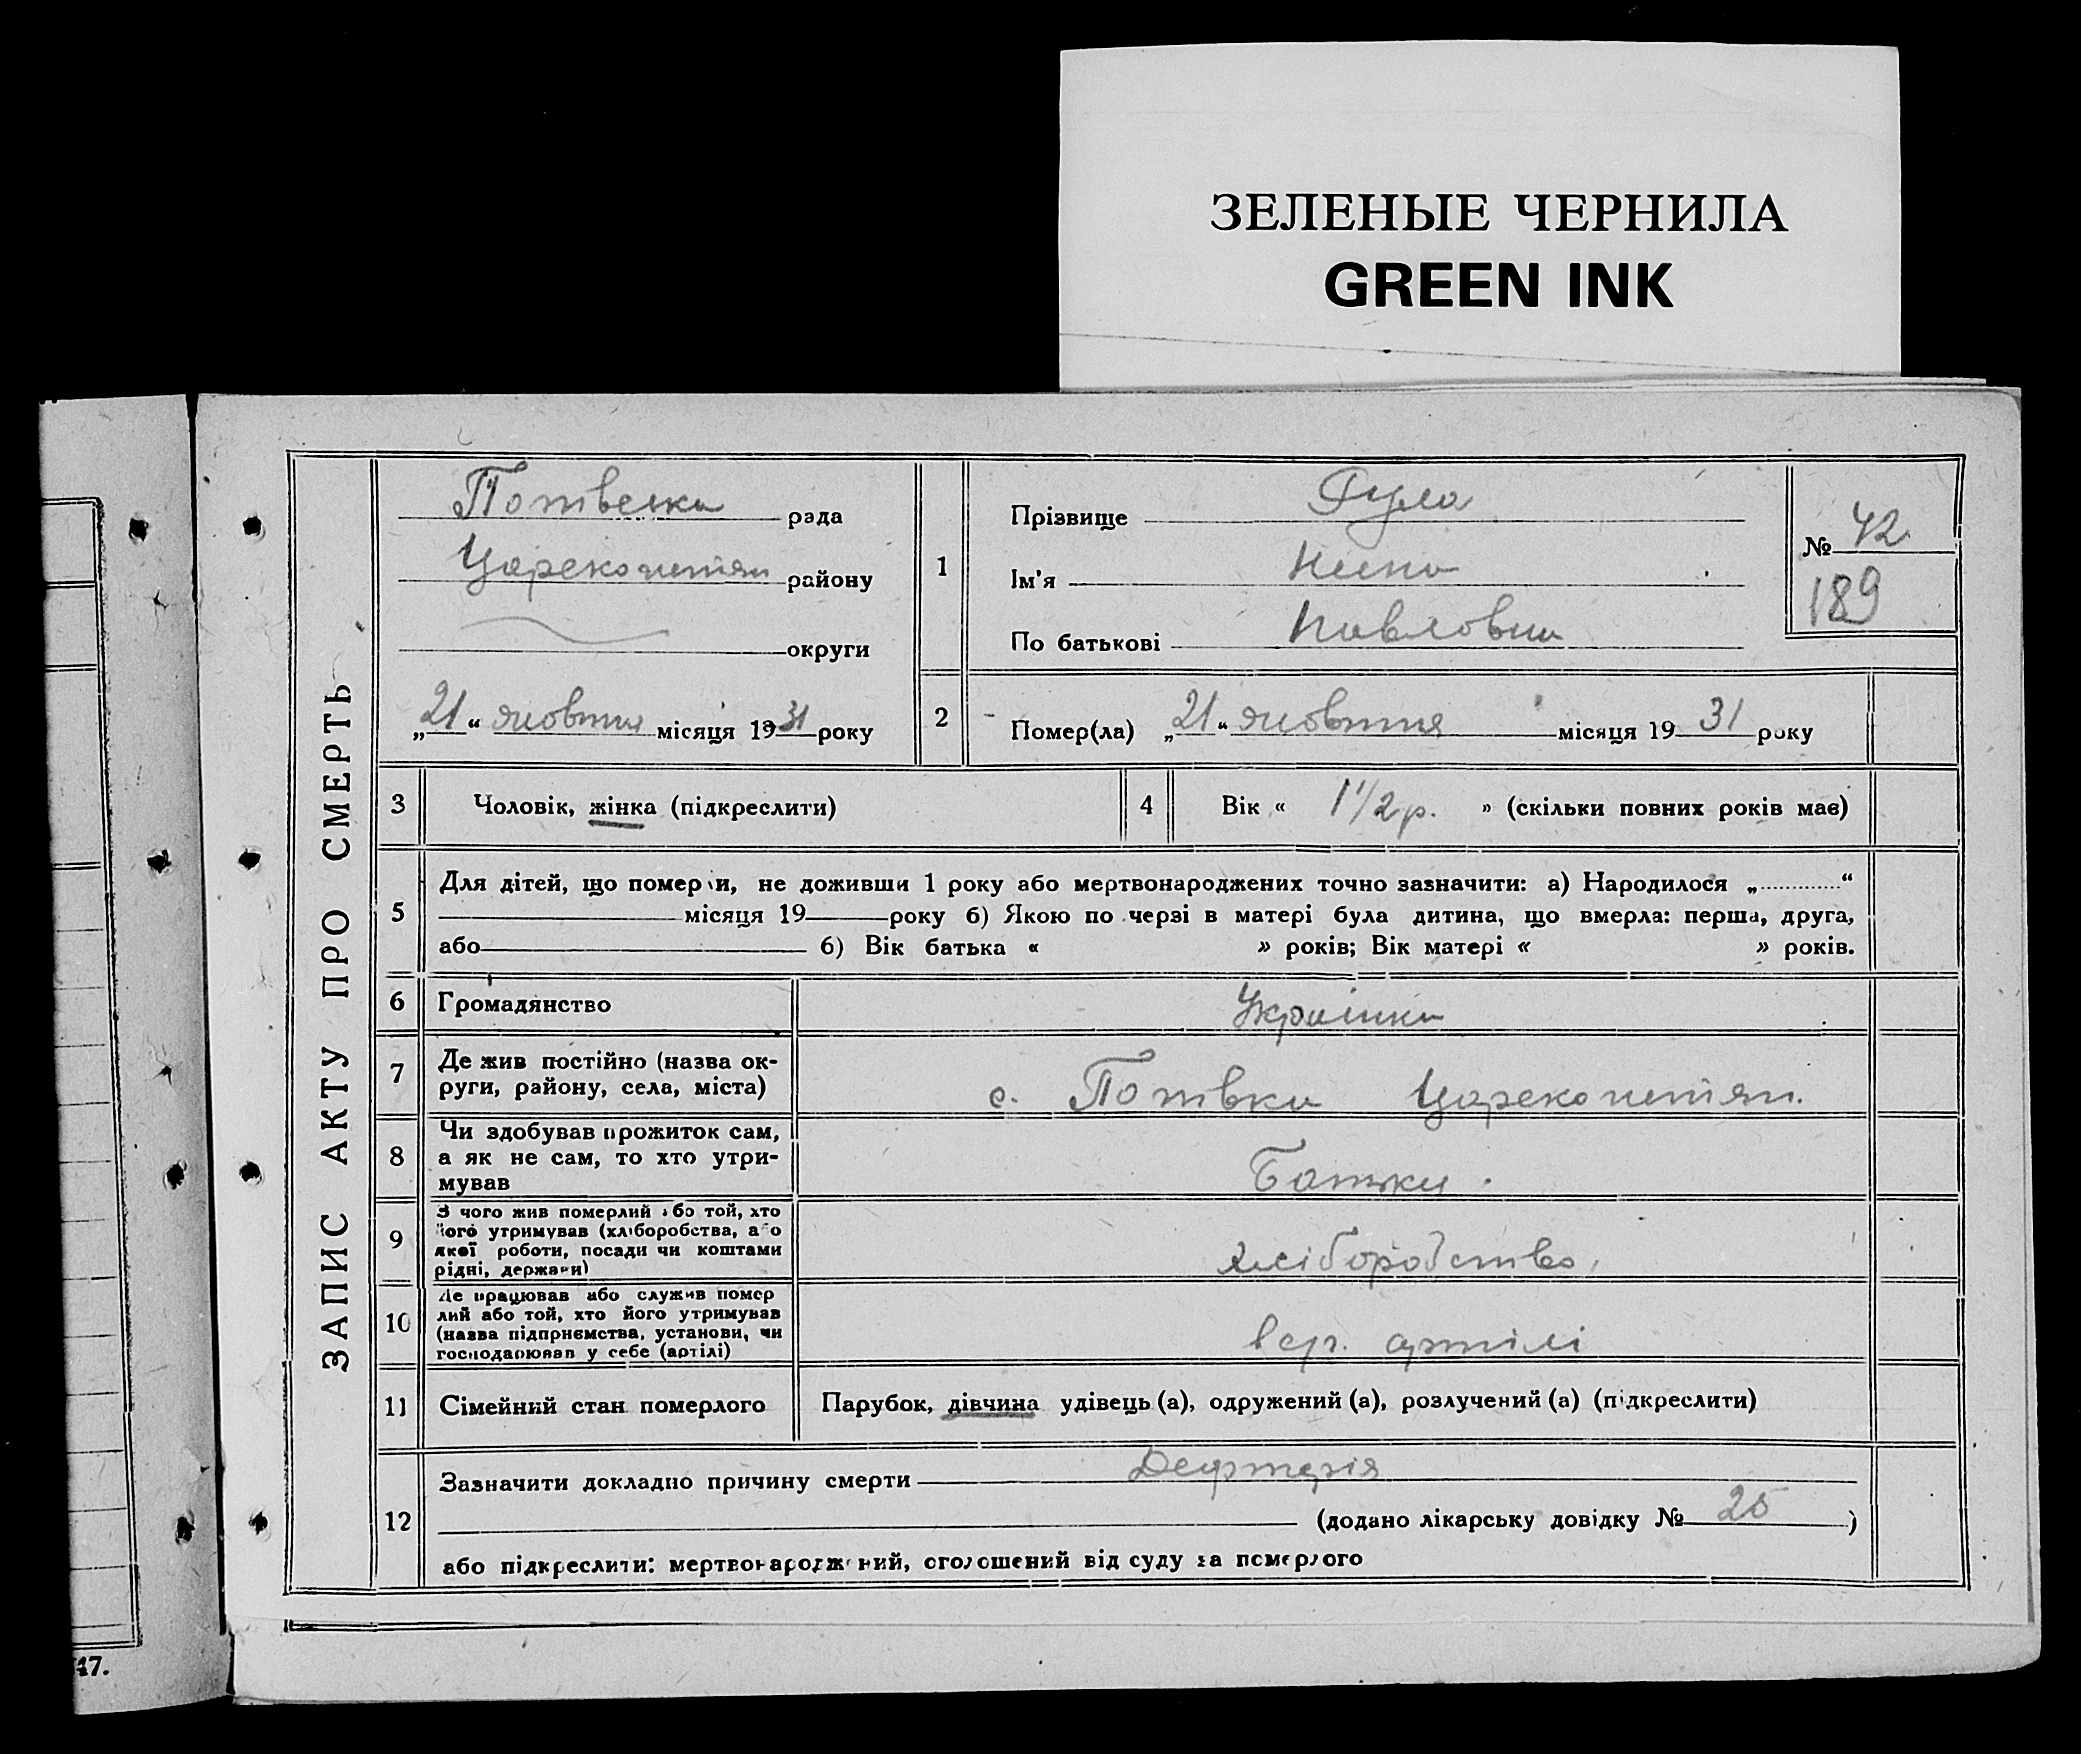 ЗЕЛЕНЫЕ ЧЕРНИЛА
GREEN INK
ЗАПИС АКТУ ПРО СМЕРТЬ
рада
Царекокитян району
округи
„21“ жовтня місяця 1931 року
1
Прізвище
Ім'я Нина
По батькові Павловна
№ 42
189
2
Помер(ла) „21“ жовтня місяця 1931 року
3
Чоловік, жінка (підкреслити)
4
Вік « 1 1/2 р. » (скільки повних років має)
5
Для дітей, що померли, не доживши 1 року або мертвонароджених точно зазначити: а) Народилося „ “
місяця 19 року б) Якою по черзі в матері була дитина, що вмерла: перша, друга,
або б) Вік батька « » років; Вік матері « » років.
6
Громадянство
Українка
7
Де жив постійно (назва ок-
руги, району, села, міста)
с.
8
Чи здобував прожиток сам,
а як не сам, то хто утри-
мував
Батьки.
9
З чого жив померлий або той, хто
його утримував (хліборобства, або
якої роботи, посади чи коштами
рідні, держави)
хліборобство
10
Де працював або служив помер
лий або той, хто його утримував
(назва підприємства, установи, чи
господарював у себе (артілі)
в с.г. артілі
11
Сімейний стан померлого
Парубок, дівчина удівець (а), одружений (а), розлучений (а) (підкреслити)
12
Зазначити докладно причину смерти Дефтерія
(додано лікарську довідку № 25 )
або підкреслити: мертвонароджений, оголошений від суду за померлого
47.